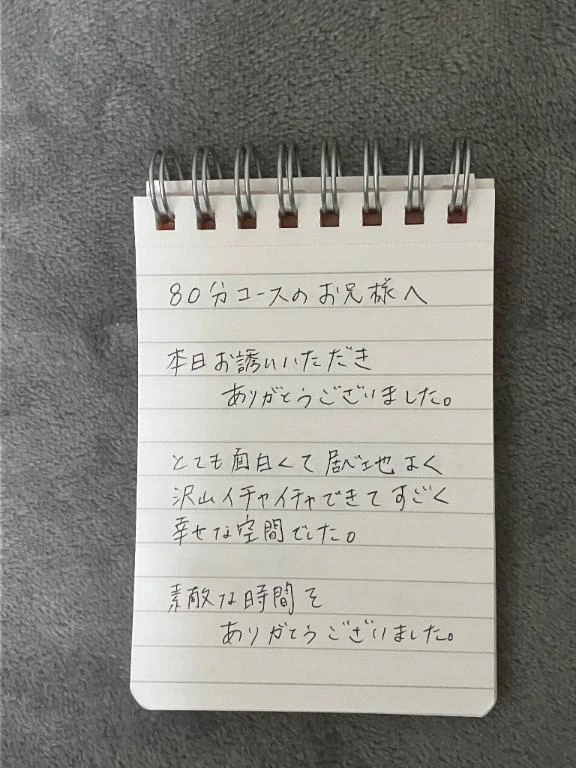 80分コースのお兄様へ
本日お誘いいただき
ありがとうございました。
とても面白くて居心地よく
沢山イチャイチャできてすごく
幸せな空間でした。
素敵な時間を
ありがとうございました。